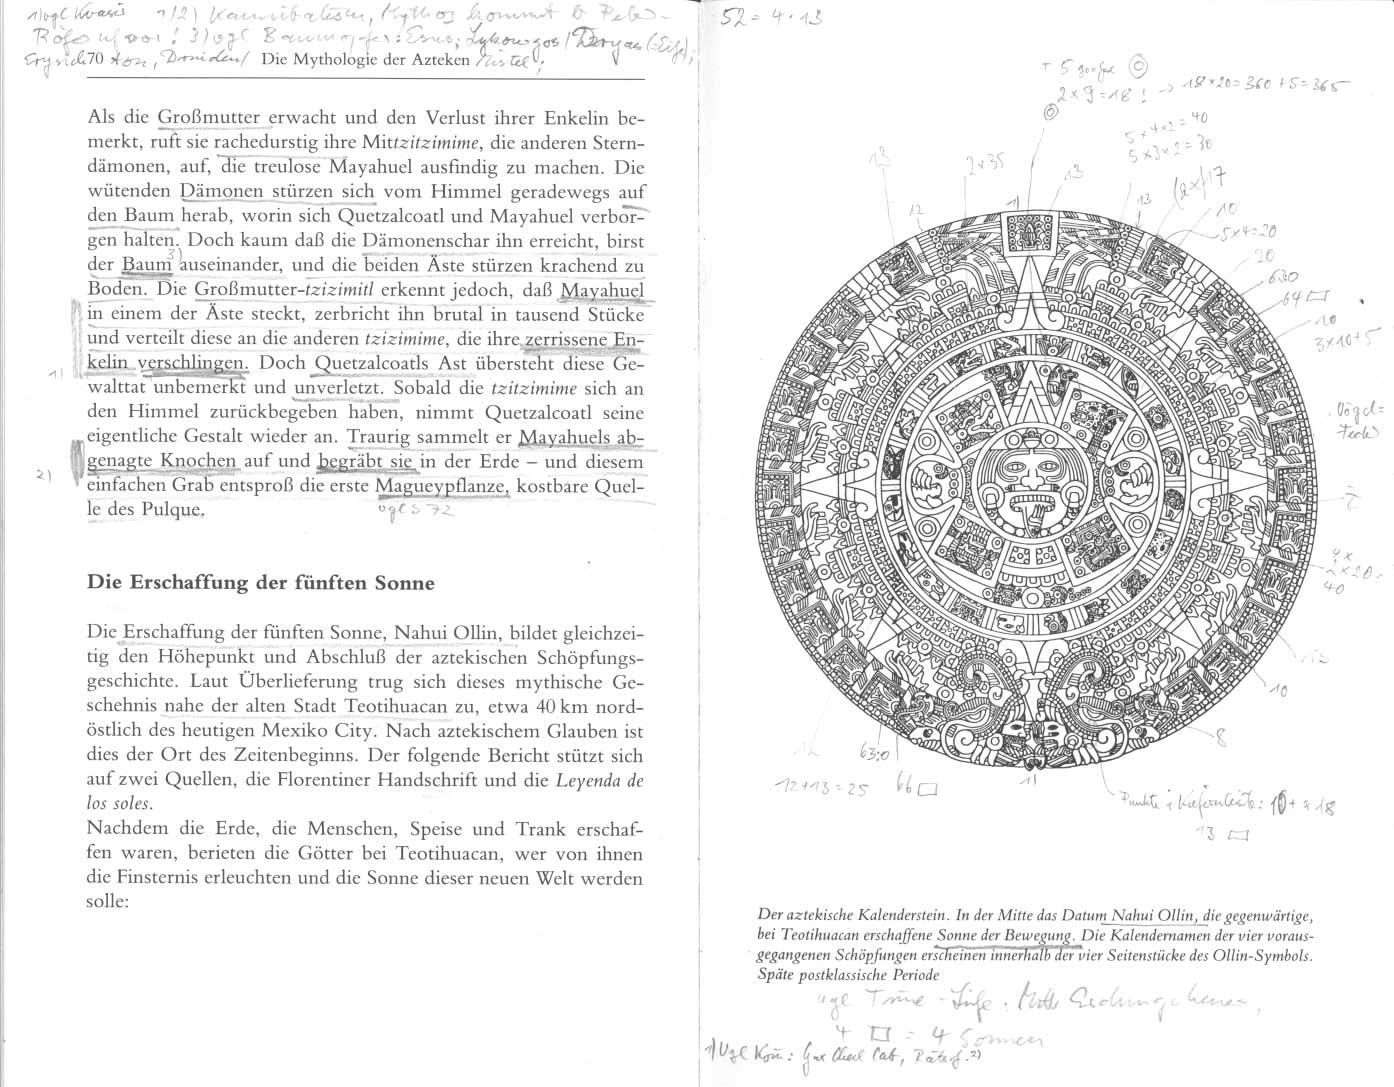 1) vgl Kvasis 1/2) Kannibalism, Mythos kommt b Pelo-
! 3) vgl Baumopfer: Esus; Lykourgos/ Dryas (=Eiche);
70 Die Mythologie der Azteken Mistel;
Als die Großmutter erwacht und den Verlust ihrer Enkelin be-
merkt, ruft sie rachedurstig ihre Mittzitzimime, die anderen Stern-
dämonen, auf, die treulose Mayahuel ausfindig zu machen. Die
wütenden Dämonen stürzen sich vom Himmel geradewegs auf
den Baum herab, worin sich Quetzalcoatl und Mayahuel verbor-
gen halten. Doch kaum daß die Dämonenschar ihn erreicht, birst
der Baum 3) auseinander, und die beiden Äste stürzen krachend zu
Boden. Die Großmutter-tzizimitl erkennt jedoch, daß Mayahuel
in einem der Äste steckt, zerbricht ihn brutal in tausend Stücke
und verteilt diese an die anderen tzizimime, die ihre zerrissene En-
1) kelin verschlingen. Doch Quetzalcoatls Ast übersteht diese Ge-
walttat unbemerkt und unverletzt. Sobald die tzitzimime sich an
den Himmel zurückbegeben haben, nimmt Quetzalcoatl seine
eigentliche Gestalt wieder an. Traurig sammelt er Mayahuels ab-
2) genagte Knochen auf und begräbt sie in der Erde – und diesem
einfachen Grab entsproß die erste Magueypflanze, kostbare Quel-
le des Pulque.
vgl S 72
Die Erschaffung der fünften Sonne
Die Erschaffung der fünften Sonne, Nahui Ollin, bildet gleichzei-
tig den Höhepunkt und Abschluß der aztekischen Schöpfungs-
geschichte. Laut Überlieferung trug sich dieses mythische Ge-
schehnis nahe der alten Stadt Teotihuacan zu, etwa 40 km nord-
östlich des heutigen Mexiko City. Nach aztekischem Glauben ist
dies der Ort des Zeitenbeginns. Der folgende Bericht stützt sich
auf zwei Quellen, die Florentiner Handschrift und die Leyenda de
los soles.
Nachdem die Erde, die Menschen, Speise und Trank erschaf-
fen waren, berieten die Götter bei Teotihuacan, wer von ihnen
die Finsternis erleuchten und die Sonne dieser neuen Welt werden
solle:
52 = 4 · 13
+ 5 große
2 × 9 = 18 ! → 18×20=360 +5=365
5×4×2=40
5×3×2=30
13
2×35
13
(2×)17
1)
12
13
10
5×4=20
20
630
64
10
3×10+5
Vögel=
40
2×20=
13
10
8
12
630
12+13=25
66
1)
Punkte i Kiefernleiste: 10 + × 18
13
Der aztekische Kalenderstein. In der Mitte das Datum Nahui Ollin, die gegenwärtige,
bei Teotihuacan erschaffene Sonne der Bewegung. Die Kalendernamen der vier voraus-
gegangenen Schöpfungen erscheinen innerhalb der vier Seitenstücke des Ollin-Symbols.
Späte postklassische Periode
vgl
4 = 4 Sonnen
1) Vgl